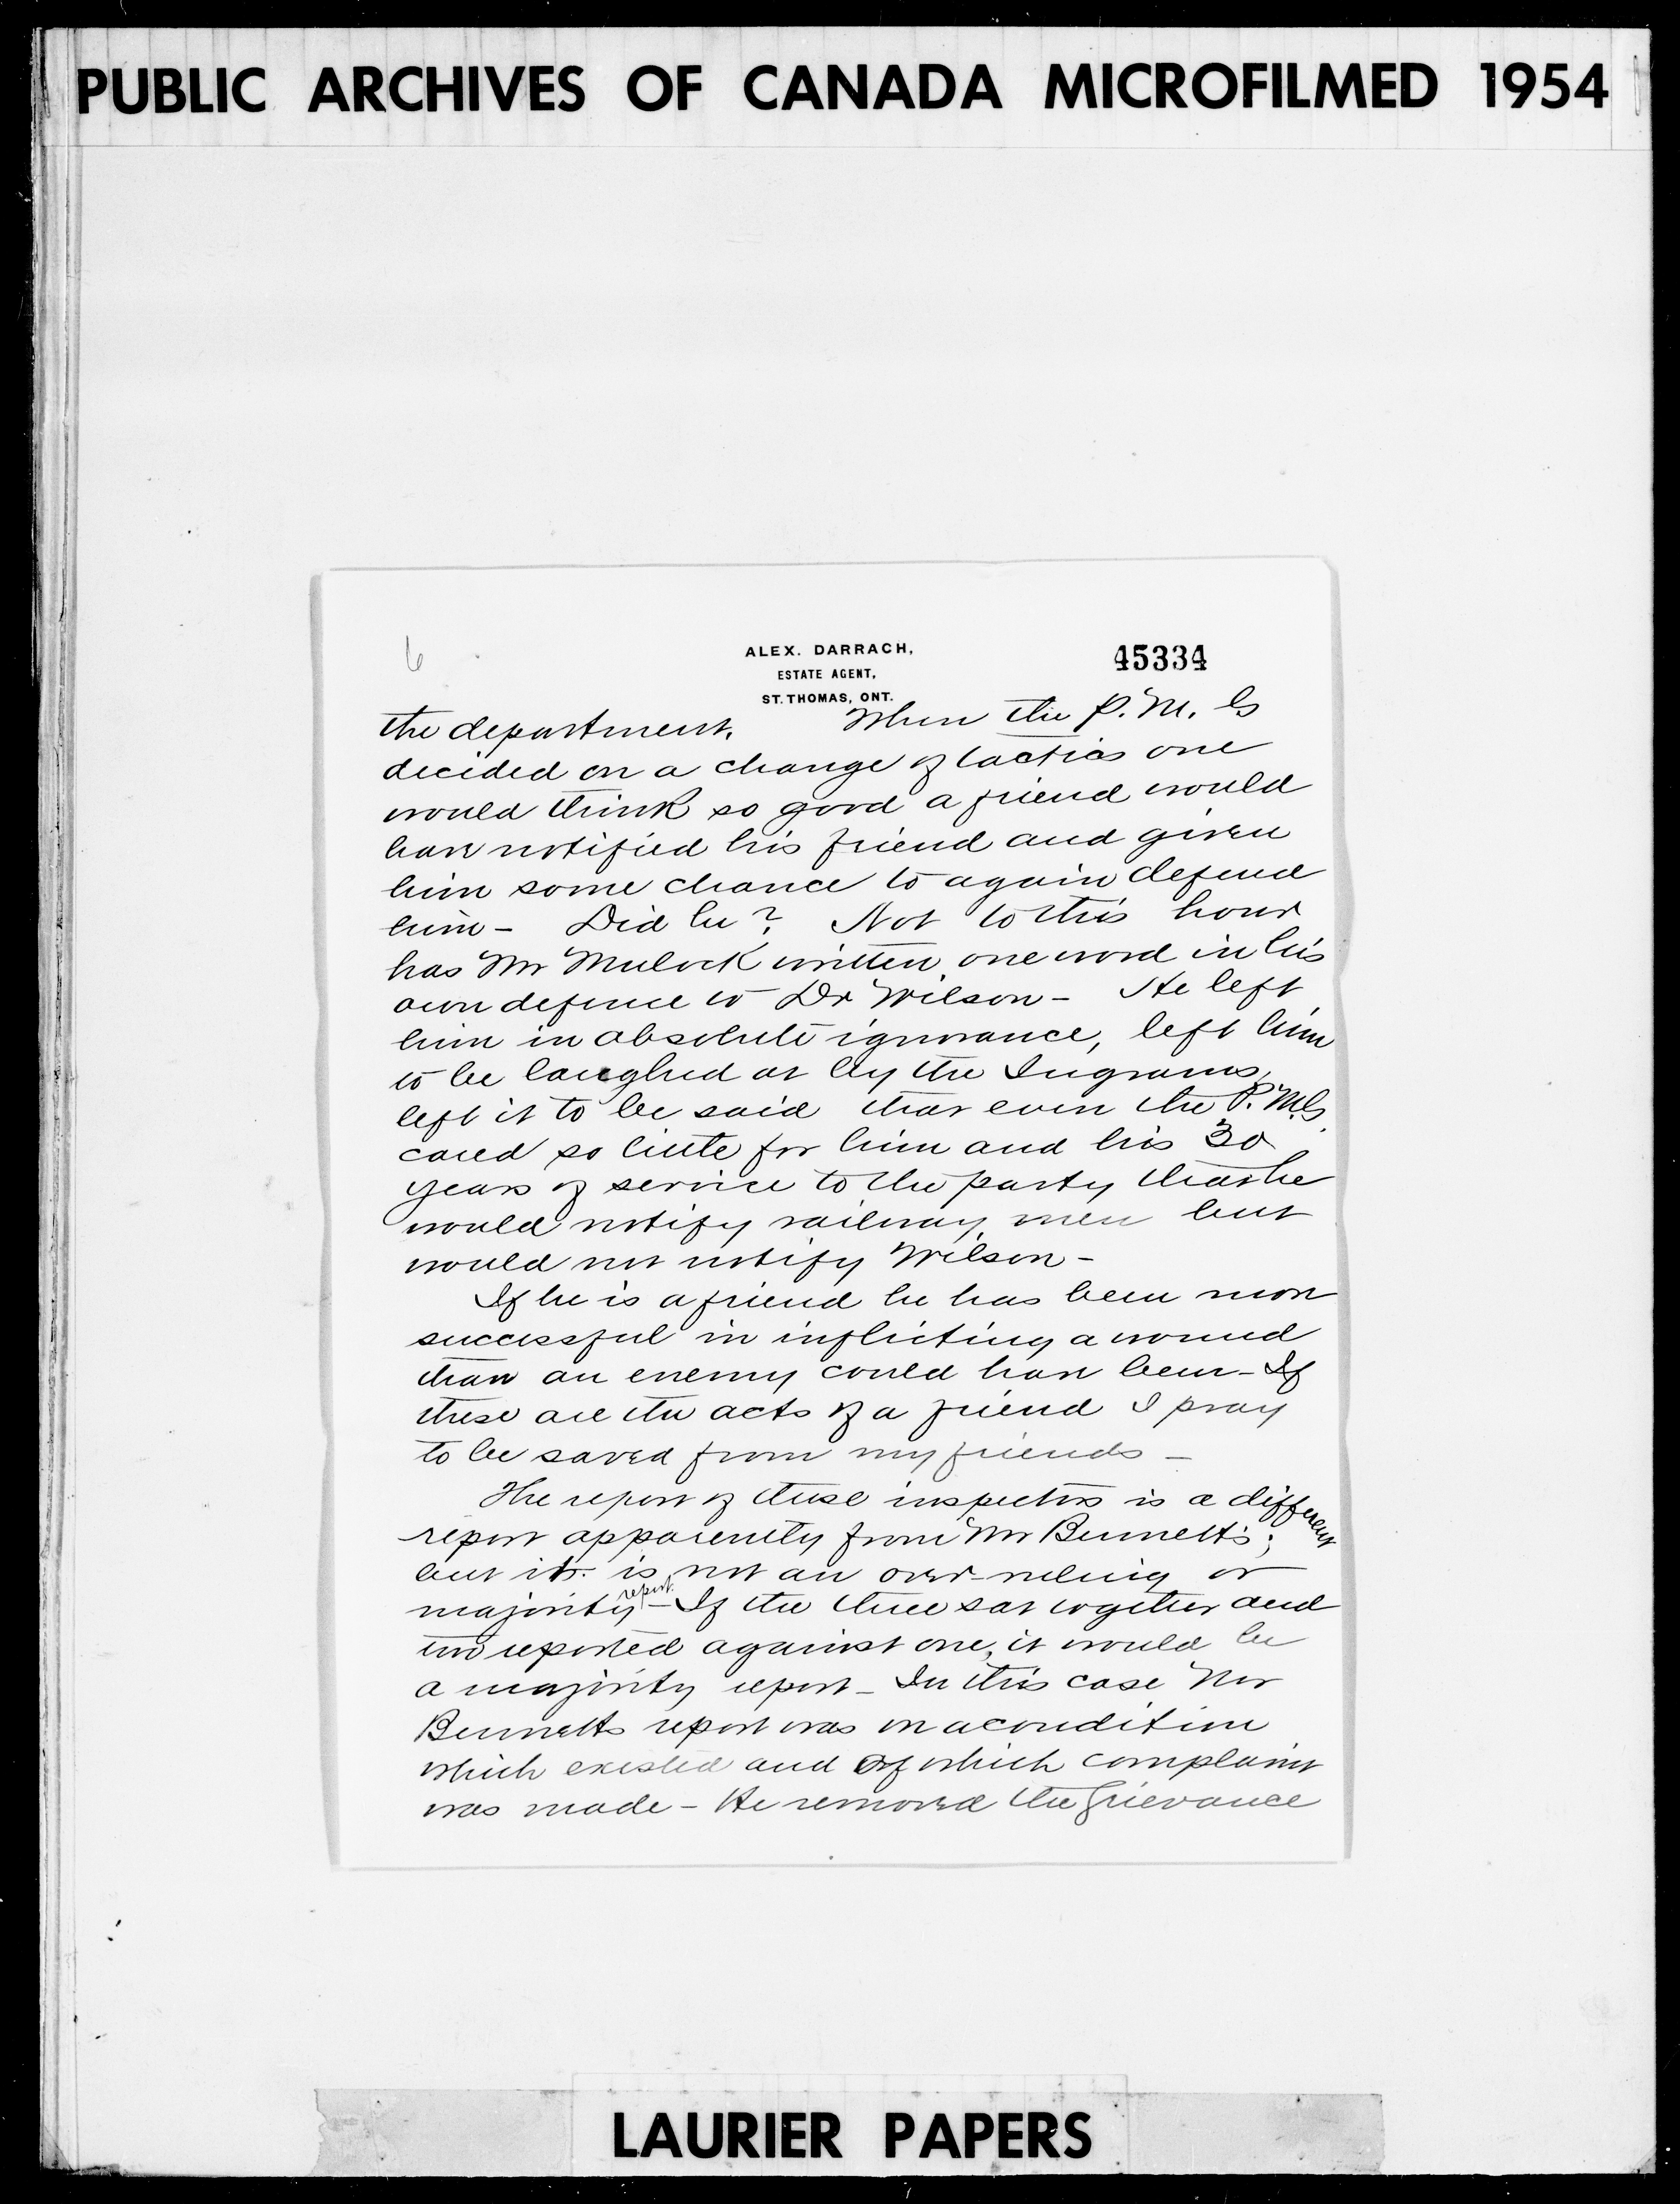 PUBLIC ARCHIVES OF CANADA MICROFILMED 1954
6
ALEX. DARRACH,
ESTATE AGENT,
ST. THOMAS, ONT.
45334
the department. When the P. M. G
decided on a change of tactics one
would think so good a friend would
have notified his friend and given
him some chance to again defend
him - Did he? Not to this hour
has Mr Mulock written one word in his
own defence to Dr Wilson - He left
him in absolute ignorance, left him
to be laughed at by the Ingrams,
left it to be said that even the P. M. G.
cared so little for him and his 30
years of service to the party that he
would notify railway men but
would not notify Wilson -
If he is a friend he has been more
successful in inflicting a wound
than an enemy could have been - If
these are the acts of a friend I pray
to be saved from my friends -
The report of these inspectors is a different
report apparently from Mr Bennett's;
but it is not an over-ruling or
majority report. - If the three sat together and
two reported against one, it would be
a majority report - In this case Mr
Bennetts report was on a condition
which existed and of which complaint
was made - He removed the grievance
LAURIER PAPERS